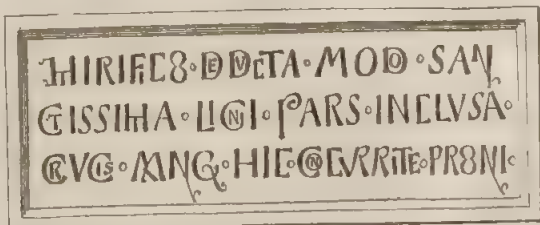 MIRIFICO · DEVECTA · MODO · SAN
CTISSIMA · LIGNI · PARS · INCLVSA ·
CRVCIS · MANET · HIC · CONCVRRITE · PRONI ·